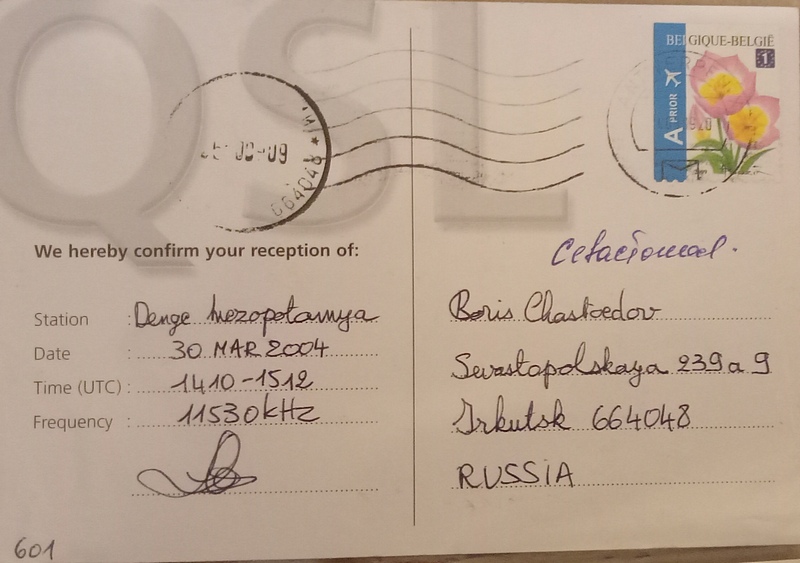 QSL
BELGIQUE-BELGIË
1
A PRIOR
-09
664048
We hereby confirm your reception of:
Station : Denge Mezopotamya
Date : 30 MAR 2004
Time (UTC) : 1410-1512
Frequency : 11530kHz
Boris Chastoedov
Sevastopolskaya 239a 9
Irkutsk 664048
RUSSIA
601